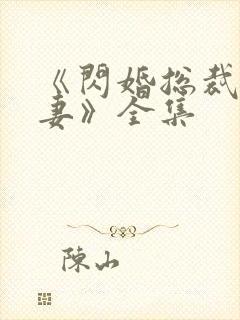 《閃婚总裁
妻》全集
陳山